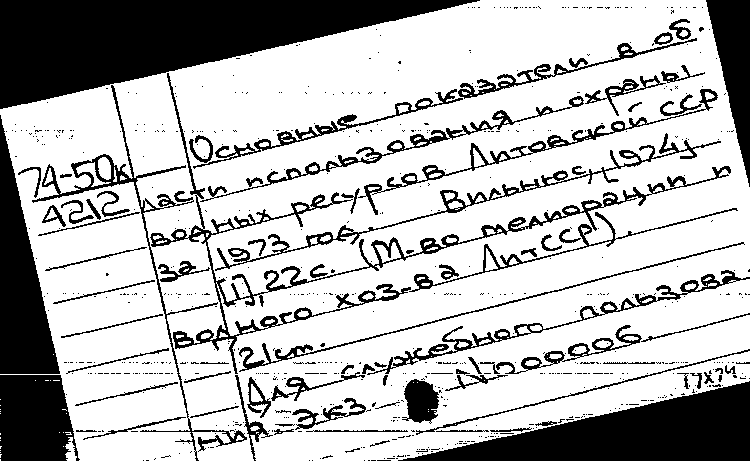 74-50к
4212
Основные показатели в об.
ласти использования и охраны
водных ресурсов Литовской ССР
за 1973 год. Вильнюс, [1974]
[1], 22 с. (М-во мелиорации и
водного хоз-ва ЛитССР).
21 ст.
Для служебного пользова.
ния. Экз. N000006.
17X74